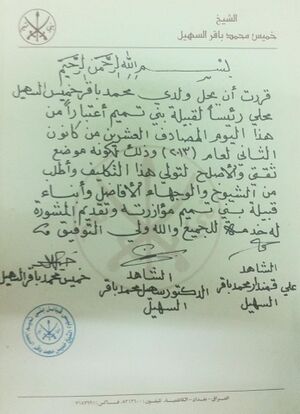 الشيخ
خميس محمد باقر السهيل
بسم الله الرحمن الرحيم
قررت أن يحل ولدي محمد باقر خميس السهيل
محلي رئيساً لقبيلة بني تميم أعتباراً من
هذا اليوم المصادف العشرين من كانون
الثاني لعام (٢٠١٣) وذلك لكونه موضع
ثقتي والأصلح لتولي هذا التكليف وأطلب
من الشيوخ والوجهاء الأفاضل وأبناء
قبيلة بني تميم مؤازرته وتقديم المشورة
له خدمة للجميع والله ولي التوفيق
الشاهد
علي قمندار محمد باقر
السهيل
الشاهد
الدكتور سهيل محمد باقر
السهيل
خميس محمد باقر السهيل
العراق - بغداد - الكاظمية